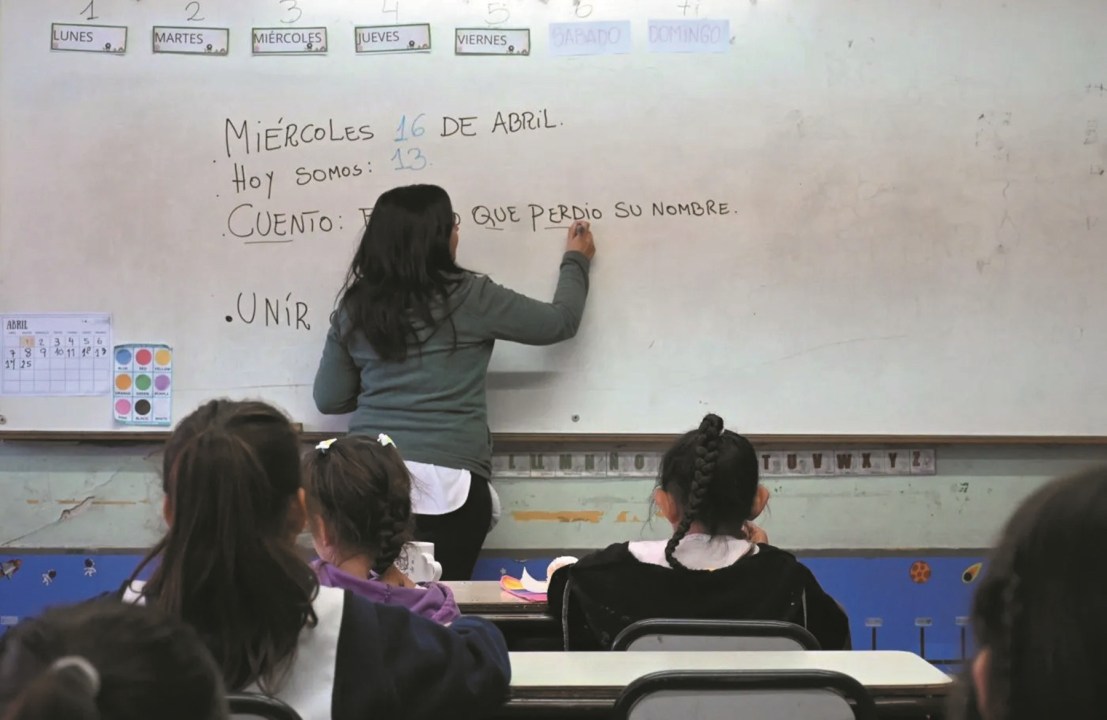 1 2 3 4 5 6 7
LUNES MARTES MIÉRCOLES JUEVES VIERNES SABADO DOMINGO
MIÉRCOLES 16 DE ABRIL.
HOY SOMOS: 13.
CUENTO: E O QUE PERDIO SU NOMBRE.
UNÍR
ABRIL
1 2 3 4 5 6
7 8 9 10 11 12 13
14 15
T U V W X Y Z